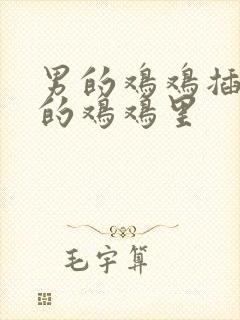 男的鸡鸡插
的鸡鸡里
毛宇算